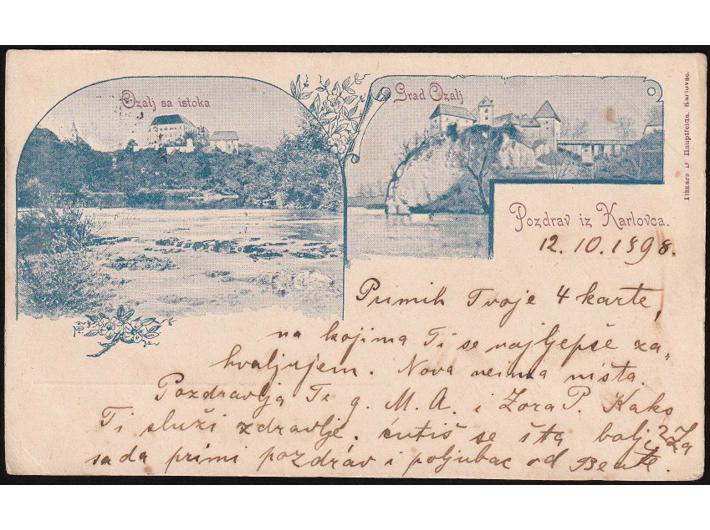 Ozalj sa istoka
Grad Ozalj
Pozdrav iz Karlovca.
12.10.1898.
Primih Tvoje 4 karte,
na kojima Ti se najljepše za„
hvaljujem. Nova neima ništa.
Pozdravlja Ti g. M. A. i Zora P. Kako
Ti služi zdravlje. ćutiš se šta bolje? Za
sada primi pozdrav i poljubac od
Tiskara D Hauptfelda, Karlovac.